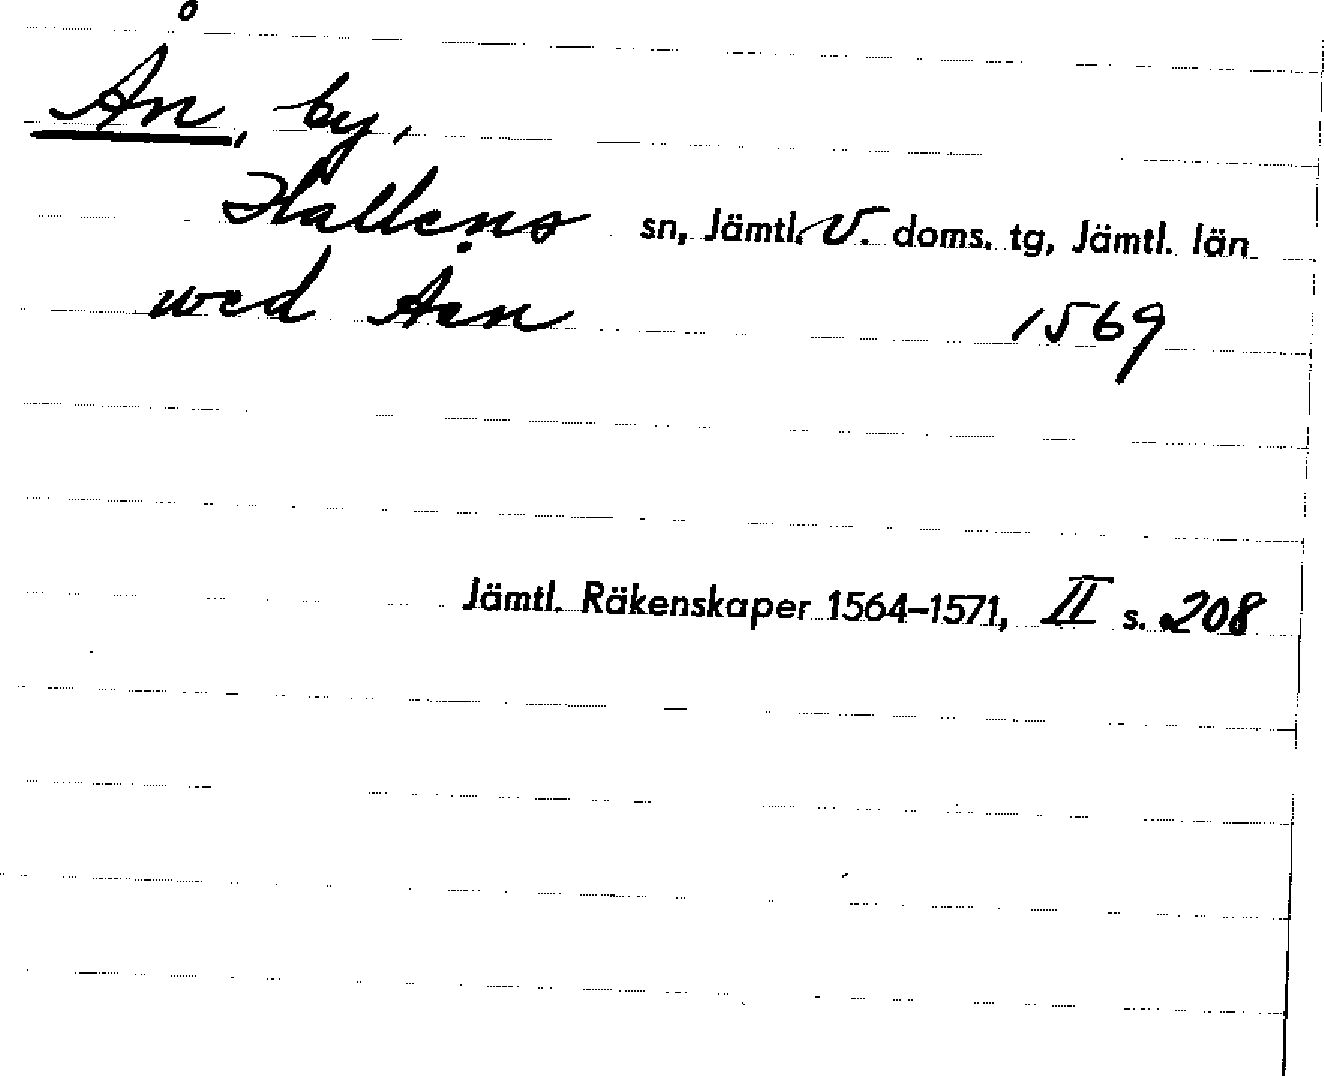 Ån, by,
Hallens sn, Jämtl. V. doms. tg, Jämtl. län
wed Åen 1569
Jämtl. Räkenskaper 1564–1571, II s. 208